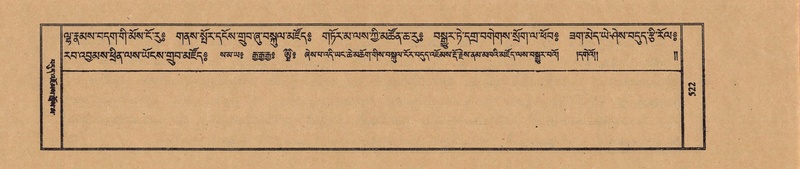 ལྷ་རྣམས་བདག་གི་མོས་ངོ་རུ༔ གནས་སྤོར་དངོས་གྲུབ་ཞུ་བསྐུལ་མཛོད༔ གཏོར་མ་ལས་ཀྱི་མཚོན་ཆ་རུ༔ བསྒྱུར་ཏེ་དགྲ་བགེགས་སྲོག་ལ་ཕོབ༔ ཟག་མེད་ཡེ་ཤེས་བདུད་རྩི་རོལ༔
རབ་འབྱམས་ཕྲིན་ལས་ཡོངས་གྲུབ་མཛོད༔ ས་མ་ཡ༔ རྒྱ་རྒྱ་རྒྱ༔ ཞེས་པ་འདི་ཡང་ཆེ་མཆོག་གིས་བསྐུལ་ངོར་བདུད་འཇོམས་རྡོ་རྗེས་ནམ་མཁའི་མཛོད་ལས་བསྒྱུར་བའོ། །དགེའོ།། ༎
522